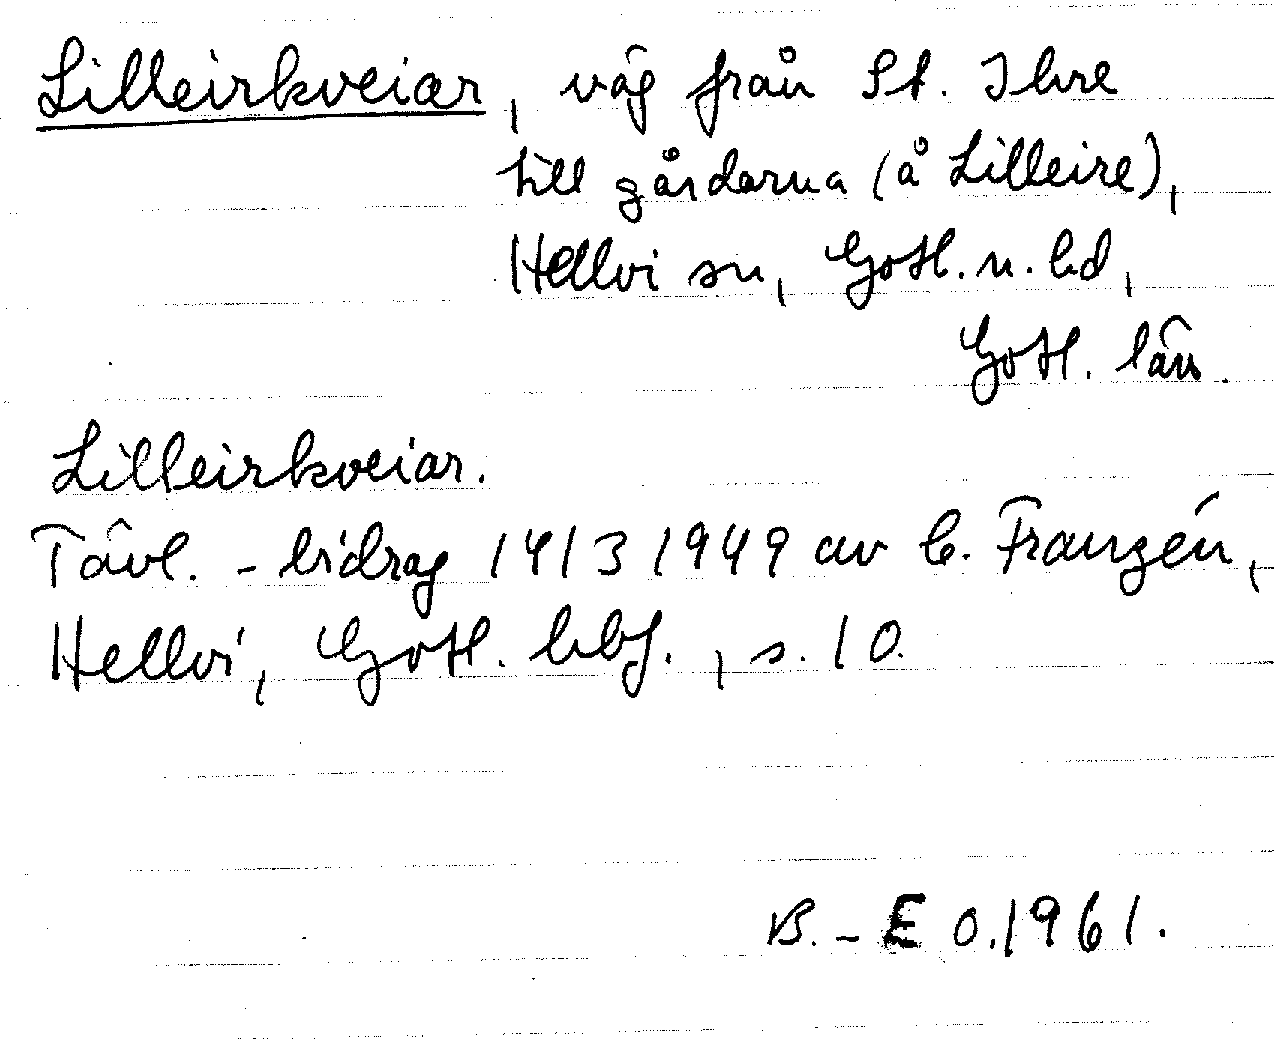 Lilleirkveiar, väg från St. Ihre
till gårdarna (å Lilleire),
Hellvi sn, Gotl. n. hd,
Gotl. län.
Lilleirkveiar.
Tävl. - bidrag 14/3 1949 av C. Franzén,
Hellvi, Gotl. hbf., s. 10.
B. - E O. 1961.